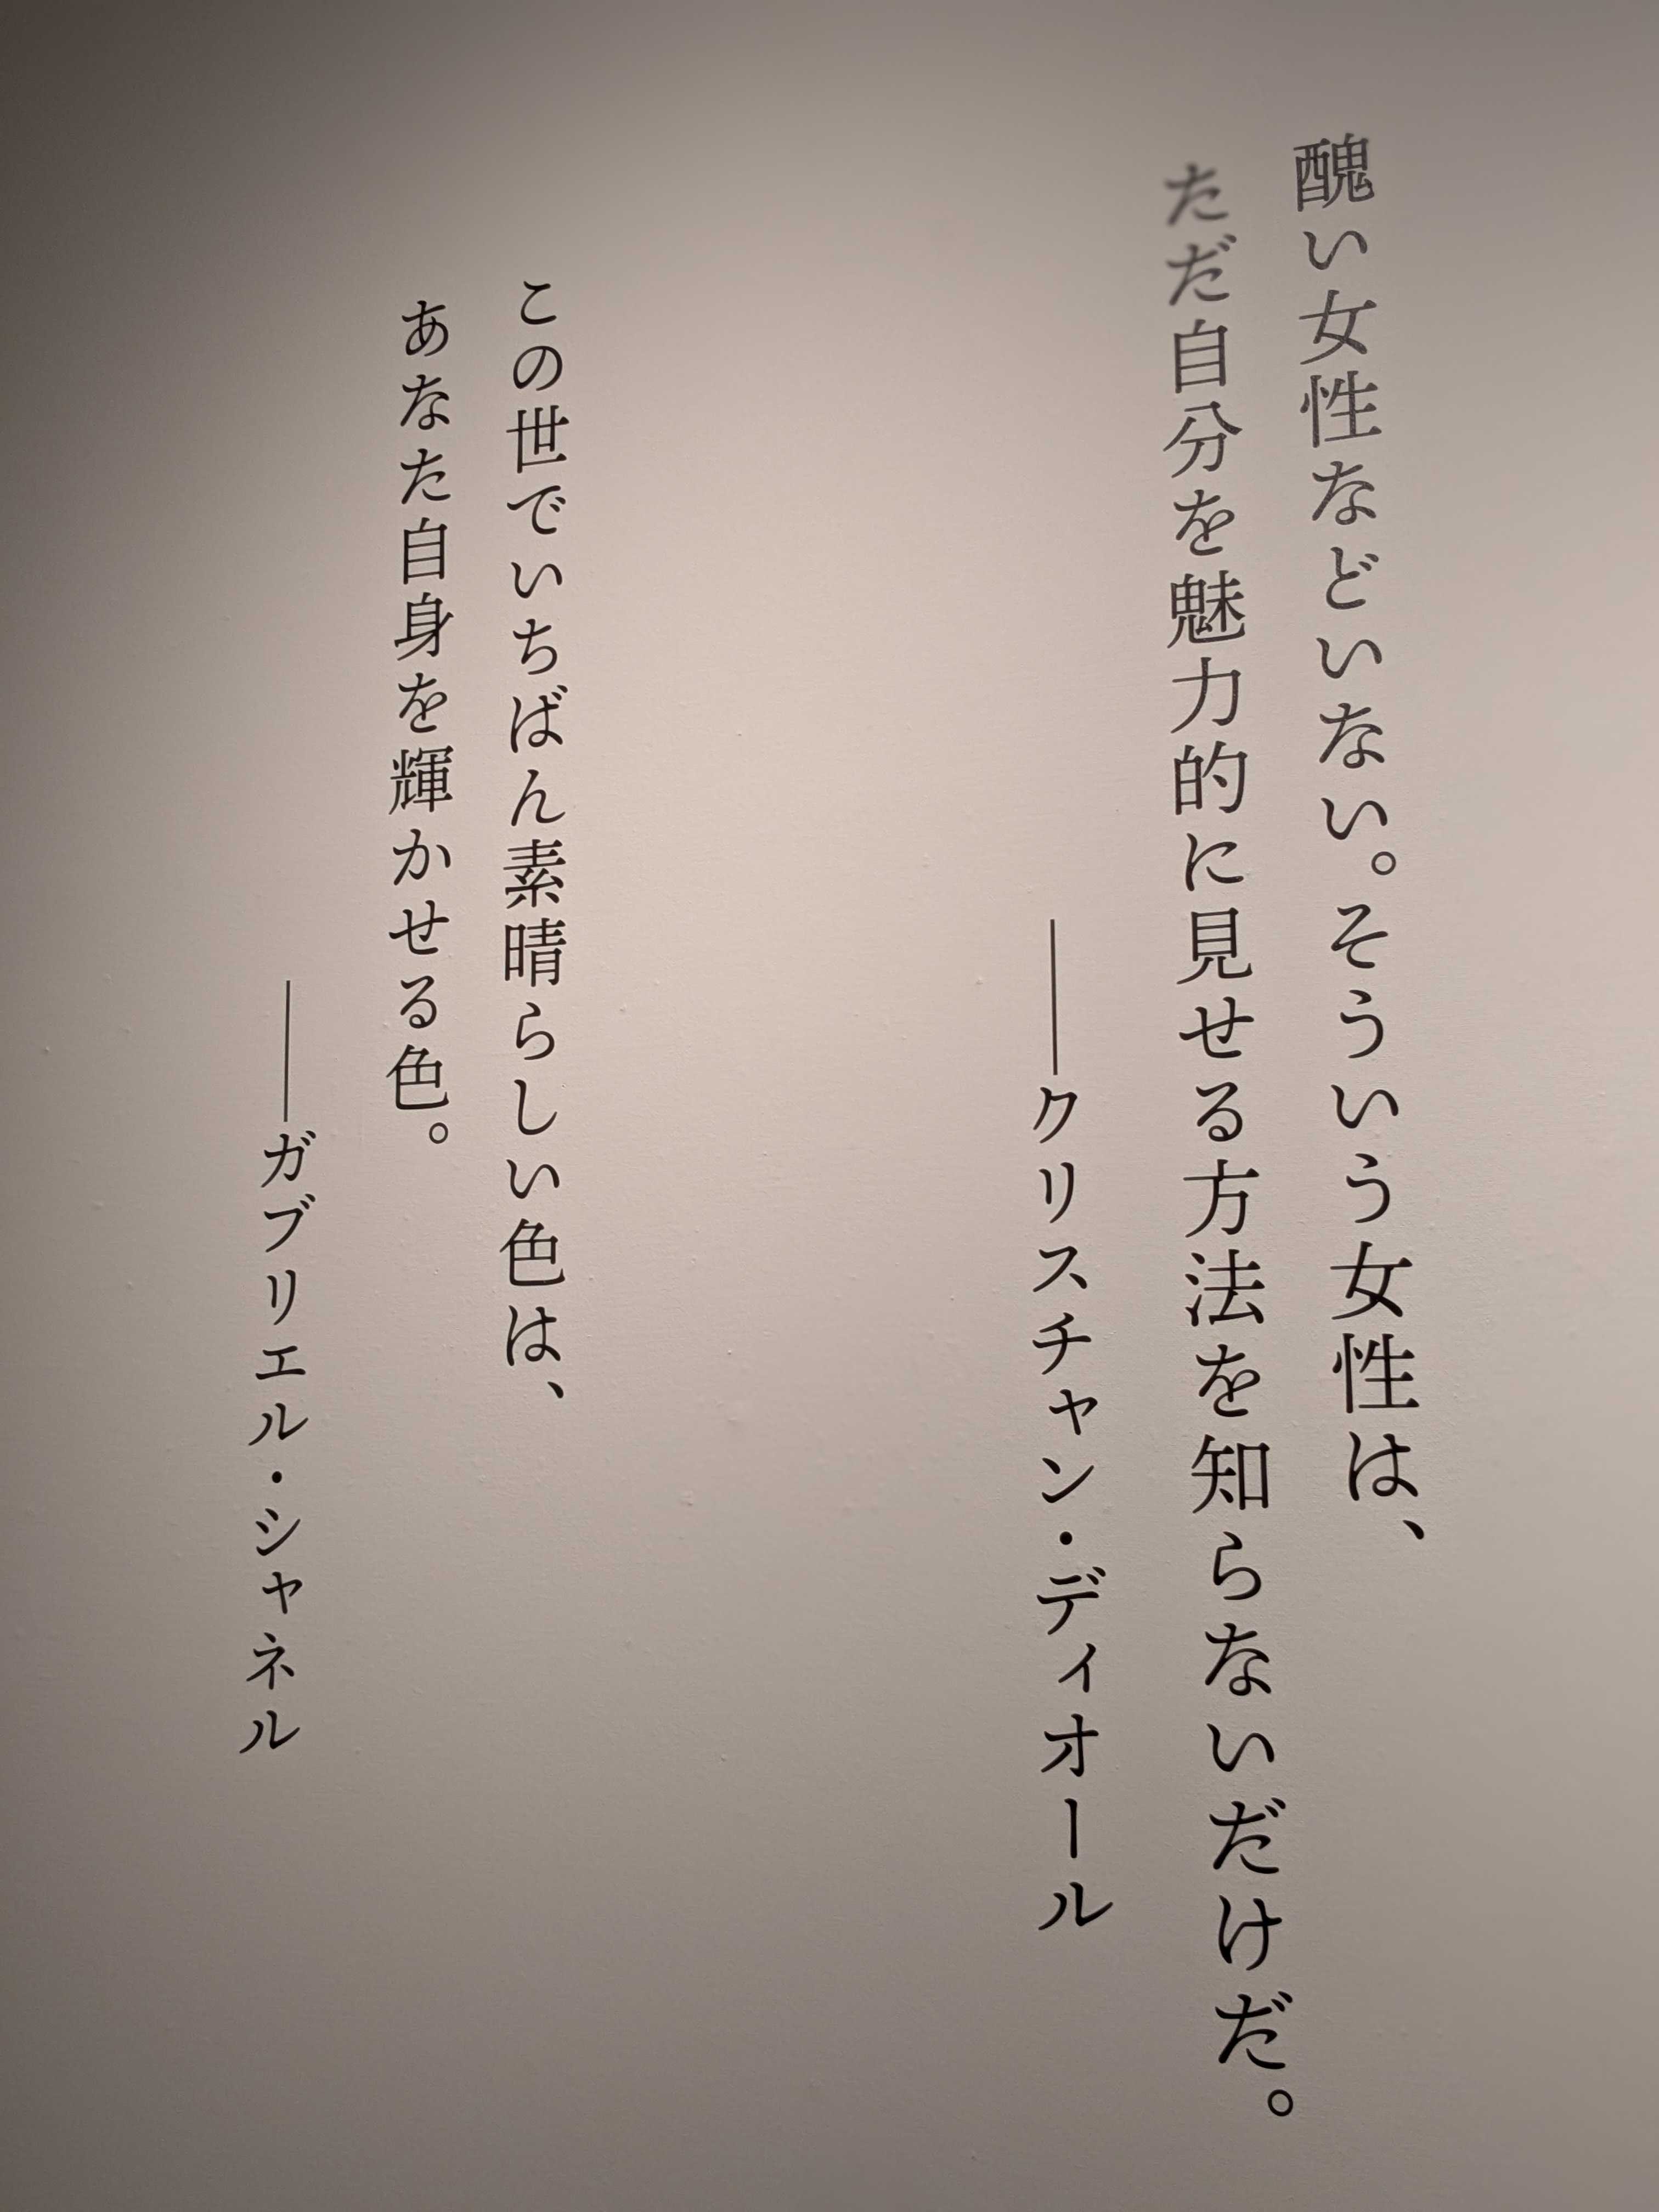 醜い女性などいない。そういう女性は、
ただ自分を魅力的に見せる方法を知らないだけだ。
――クリスチャン・ディオール
この世でいちばん素晴らしい色は、
あなた自身を輝かせる色。
――ガブリエル・シャネル